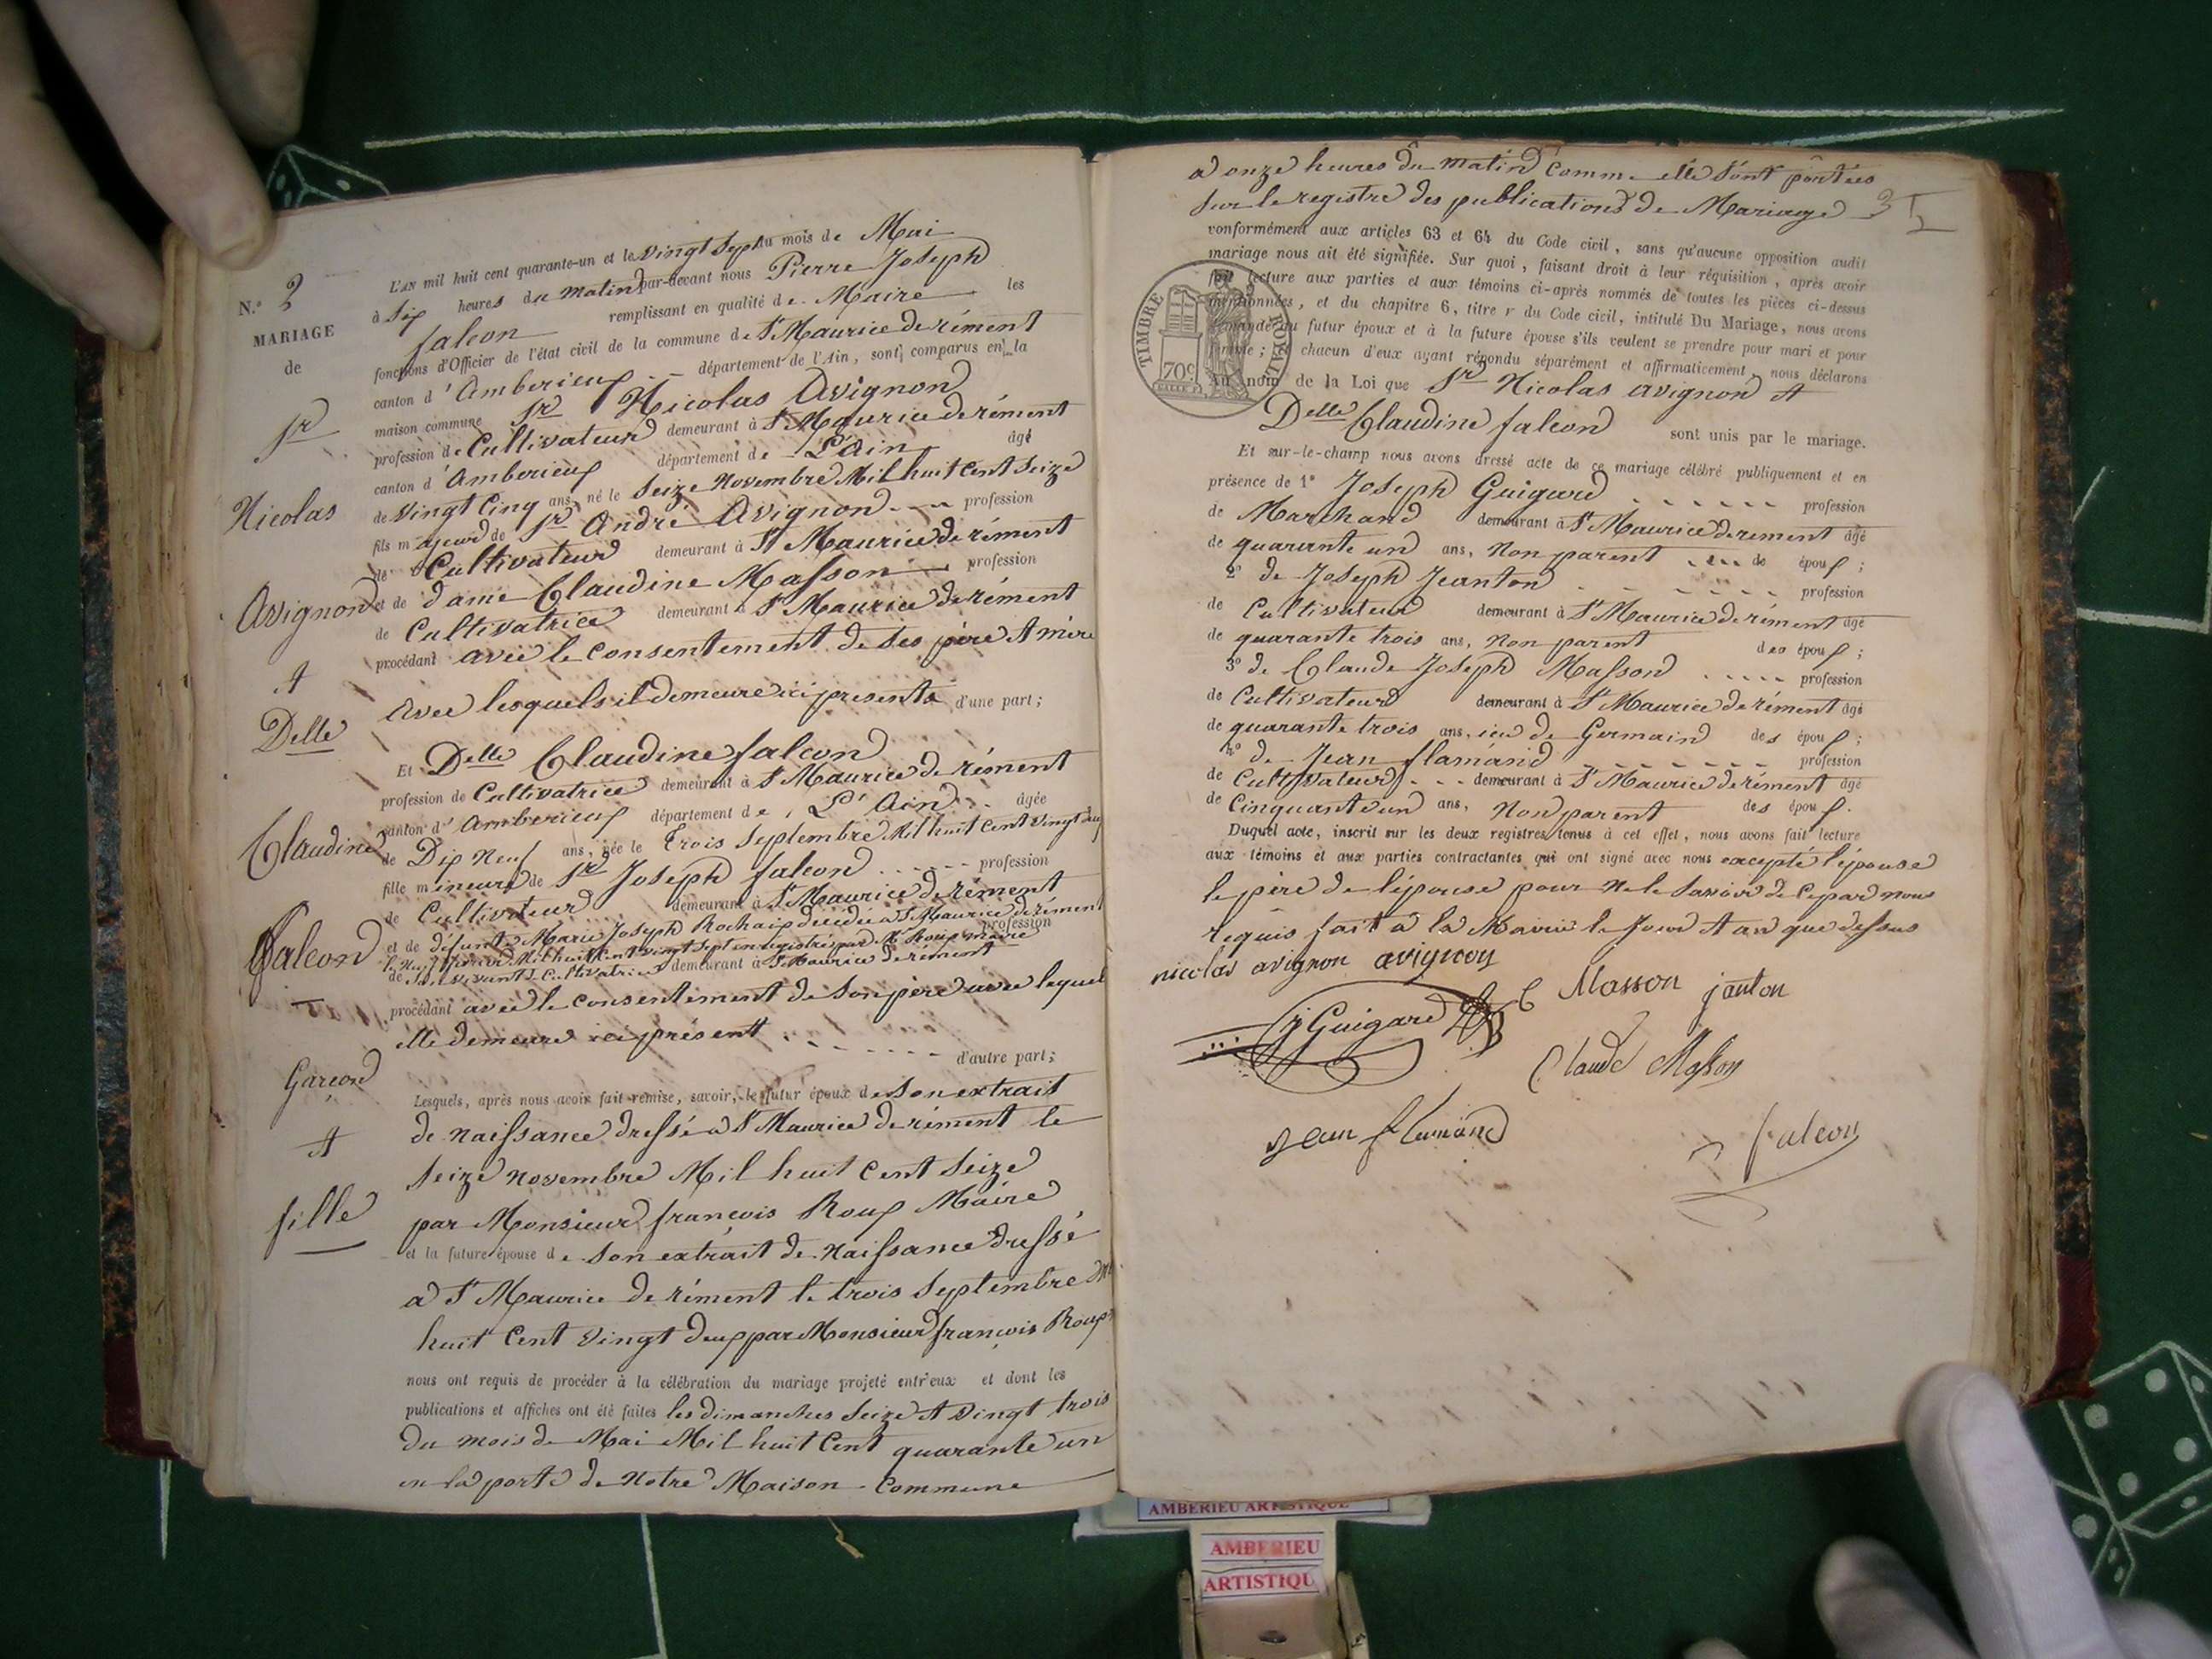 N.° 2
MARIAGE
de
Sr
Nicolas
Avignon
et
Delle
Claudine
falcon
Garcon
et
fille
L'AN mil huit cent quarante-un et le vingt Sept du mois de Mai
à Six heures du matin par-devant nous Pierre Joseph
falcon remplissant en qualité de Maire les
fonctions d'Officier de l'état civil de la commune de St Maurice de rément
canton d'Amberieux département de l'Ain, sont comparus en la
maison commune Sr Nicolas Avignon
profession de Cultivateur demeurant à St Maurice de rément
canton d'Amberieux département de L'Ain âgé
de vingt Cinq ans, né le Seize Novembre Mil huit Cent Seize
fils majeur de Sr André Avignon profession
de Cultivateur demeurant à St Maurice de rément
et de dame Claudine Masson profession
de Cultivatrice demeurant à St Maurice de rément
procédant avec le Consentement de Ses père et mère
Avec lesquels il demeure ici presents d'une part;
Et Delle Claudine falcon
profession de Cultivatrice demeurant à St Maurice de rément
canton d'Amberieux département de L'Ain âgée
de Dix Neuf ans, née le Trois Septembre Mil huit Cent vingt deux
fille mineure de Sr Joseph falcon profession
de Cultivateur demeurant à St Maurice de rément
et de défunte Marie Joseph Rochaix décédée à St Maurice de rément
le Mil huit Cent vingt Sept enregistré par Mr Roux maire profession
de Son vivant Cultivatrice demeurant à St Maurice de rément
procédant avec le Consentement de Son père avec lequel
elle demeure ici présent
d'autre part;
Lesquels, après nous avoir fait remise, savoir, le futur époux de Son extrait
de Naissance dressé à St Maurice de rément le
Seize Novembre Mil huit Cent Seize
par Monsieur françois Roux Maire
et la future épouse de Son extrait de Naissance dressé
à St Maurice de rément le trois Septembre Mil
huit Cent vingt deux par Monsieur françois Roux
nous ont requis de procéder à la célébration du mariage projeté entr'eux et dont les
publications et affiches ont été faites les dimanches Seize et vingt trois
du mois de Mai Mil huit Cent quarante un
en la porte de Notre Maison Commune
a onze heures du matin Comme elle Sont portées
Sur le registre des publications de Mariage 3
conformément aux articles 63 et 64 du Code civil, sans qu'aucune opposition audit
mariage nous ait été signifiée. Sur quoi, faisant droit à leur réquisition, après avoir
fait lecture aux parties et aux témoins ci-après nommés de toutes les pièces ci-dessus
mentionnées, et du chapitre 6, titre v du Code civil, intitulé Du Mariage, nous avons
demandé au futur époux et à la future épouse s'ils veulent se prendre pour mari et pour
femme; chacun d'eux ayant répondu séparément et affirmativement, nous déclarons
Au nom de la Loi que Sr Nicolas Avignon et
Delle Claudine falcon sont unis par le mariage.
TIMBRE ROYAL
70c
Et sur-le-champ nous avons dressé acte de ce mariage célébré publiquement et en
présence de 1° Joseph Guigard profession
de Marchand demeurant à St Maurice de rement âgé
de quarante un ans, Non parent des époux;
2° de Joseph Jeanton profession
de Cultivateur demeurant à St Maurice de rément âgé
de quarante trois ans, Non parent des époux;
3° de Claude Joseph Masson profession
de Cultivateur demeurant à St Maurice de rément âgé
de quarante trois ans, Germain des époux;
4° de Jean flamand profession
de Cultivateur demeurant à St Maurice de rément âgé
de Cinquante un ans, Non parent des époux.
Duquel acte, inscrit sur les deux registres tenus à cet effet, nous avons fait lecture
aux témoins et aux parties contractantes qui ont signé avec nous excepté l'épouse
le père de l'épouse pour Ne le Savoir de Ce par nous
requis fait à la Mairie le Jour et an que dessus
nicolas avignon avignon
j Guigard C Masson janton
Claude Masson
Jean flamand
falcon
AMBERIEU ARTISTIQUE
AMBERIEU
ARTISTIQU